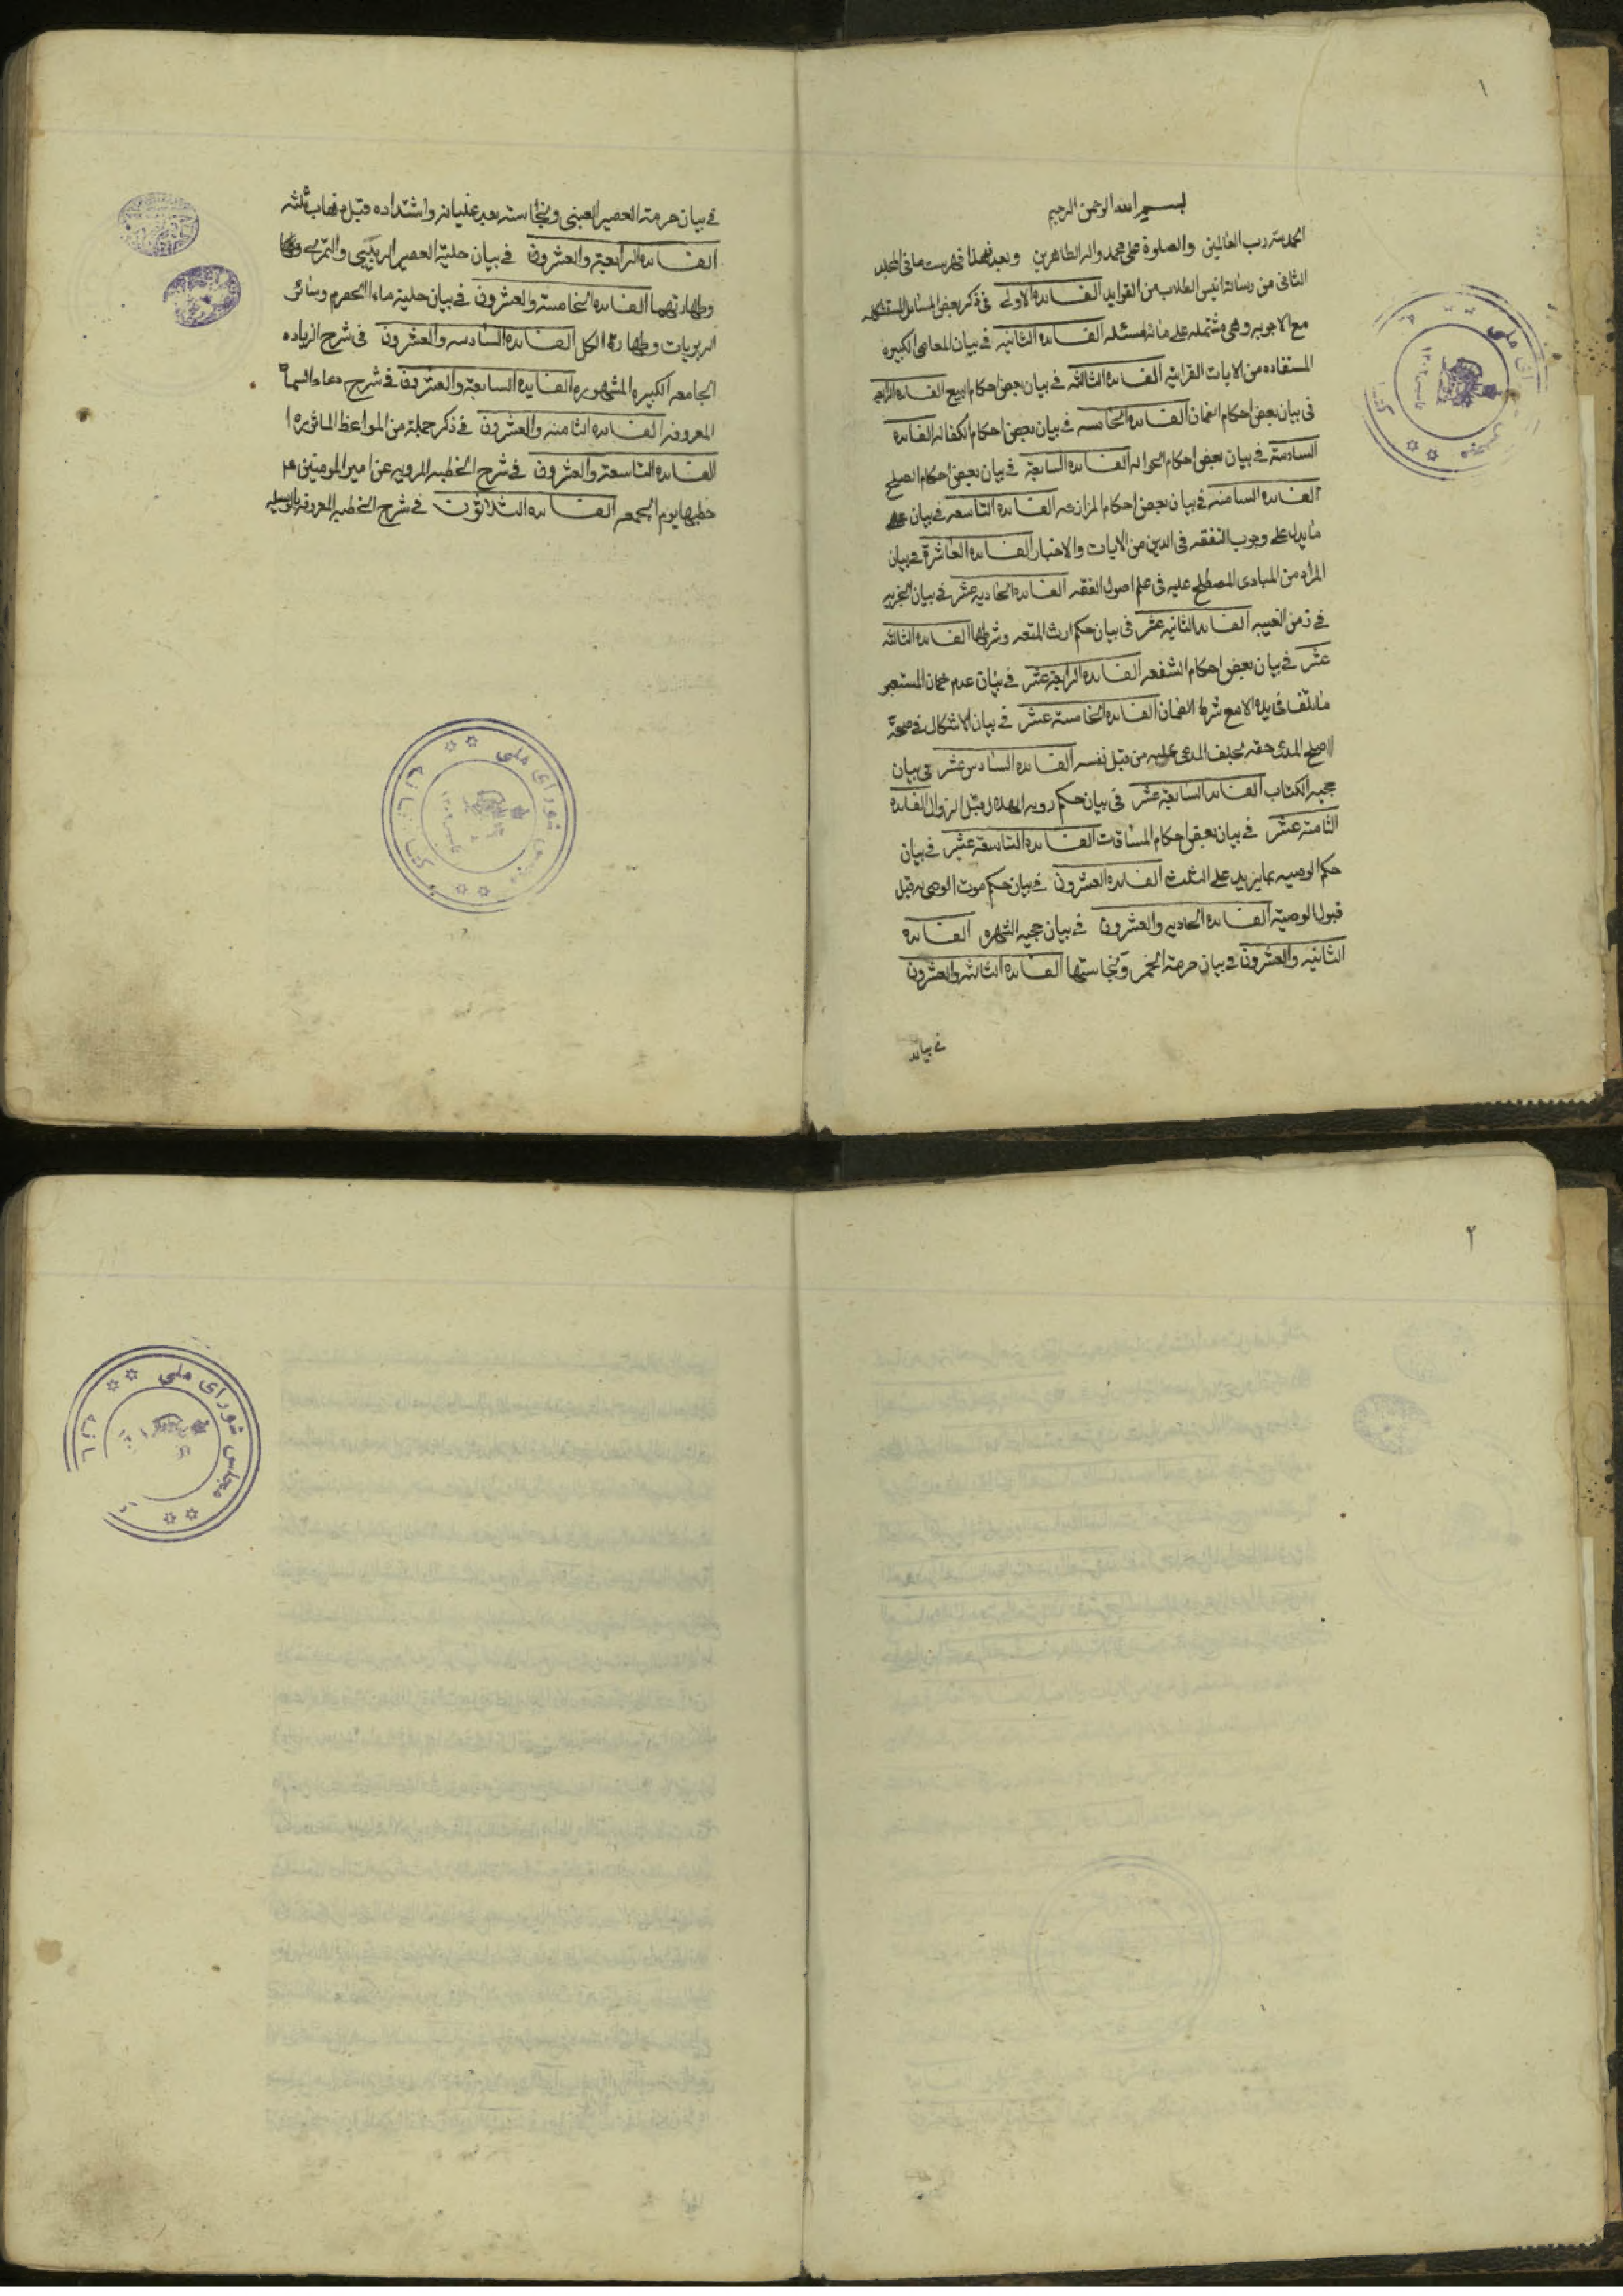 ١
بسم الله الرحمن الرحيم
الحمد لله رب العالمين والصلوة على محمد واله الطاهرين وبعد فهذا فهرست ما فى المجلد
الثانى من رسالة انيس الطلاب من الفوايد الفائده الاولى فى ذكر بعض المسائل المستشكله
مع الاجوبه وهى مشتمله على مائة مسئله الفائده الثانيه فى بيان المعاصى الكبيره
المستفاده من الايات القرانيه الفائده الثالثه فى بيان بعض احكام البيع الفائده الرابعه
فى بيان بعض احكام الضمان الفائده الخامسه فى بيان بعض احكام الكفاله الفائده
السادسة فى بيان بعض احكام الحواله الفائده السابعة فى بيان بعض احكام الصلح
الفائده الثامنه فى بيان بعض احكام المزارعه الفائده التاسعه فى بيان
ما يدل على وجوب التفقه فى الدين من الايات والاخبار الفائده العاشرة فى بيان
المراد من المبادى المصطلح عليه فى علم اصول الفقه الفائده الحاديه عشر فى بيان
فى زمن الغيبه الفائده الثانيه عشر فى بيان حكم ارث المتعه وشرطها الفائده الثالثه
عشر فى بيان بعض احكام الشفعه الفائده الرابعة عشر فى بيان عدم ضمان المستعير
ما يتلف فى يده الا مع شرط الضمان الفائده الخامسة عشر فى بيان الاشكال فى صحة
المدعى حقه بحلف المدعى عليه من قبل نفسه الفائده السادس عشر فى بيان
حجيه الكتاب الفائده السابعة عشر فى بيان حكم رويه الهلال قبل الزوال الفائده
الثامنة عشر فى بيان بعض احكام المساقات الفائده التاسعة عشر فى بيان
حكم الوصيه بما يزيد على الثلث الفائده العشرون فى بيان حكم موت الوصى به قبل
قبول الوصية الفائده الحاديه والعشرون فى بيان حجيه الشهره الفائده
الثانيه والعشرون فى بيان حرمة الخمر ونجاستها الفائده الثالثه والعشرون
فى بيان
فى بيان حرمة العصير العنبى ونجاسته بعد غليانه واشتداده قبل ذهاب ثلثه
الفائده الرابعة والعشرون فى بيان حلية العصير الزبيبى والتمرى
وطهارتهما الفائده الخامسة والعشرون فى بيان حلية ماء الحصرم وسائر
الربوبات وطهارة الكل الفائده السادسه والعشرون فى شرح الزياده
الجامعه الكبيره المشهوره الفايده السابعة والعشرون فى شرح دعاء السمات
المعروفه الفائده الثامنه والعشرون فى ذكر جملة من المواعظ الماثوره
الفائده التاسعة والعشرون فى شرح الخطبه المرويه عن امير المومنين ع
خطبها يوم الجمعه الفائده الثلاثون فى شرح الخطبه المعروفه بالوسيله
شوراى ملى
٢
مجلس شوراى ملى